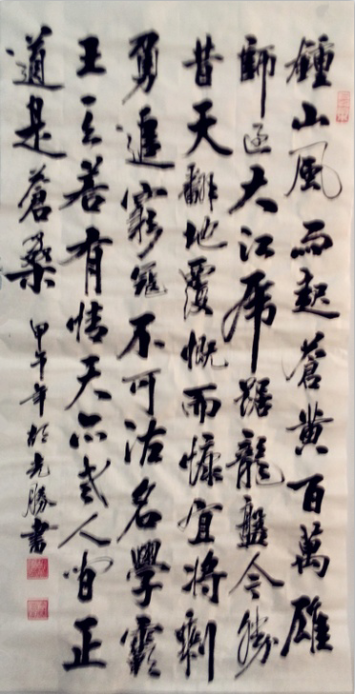 鍾山風雨起蒼黄百萬雄
師過大江虎踞龍盤今勝
昔天翻地覆慨而慷宜將剩
勇追窮寇不可沽名學霸
王天若有情天亦老人間正
道是蒼桑 甲午年於光勝書